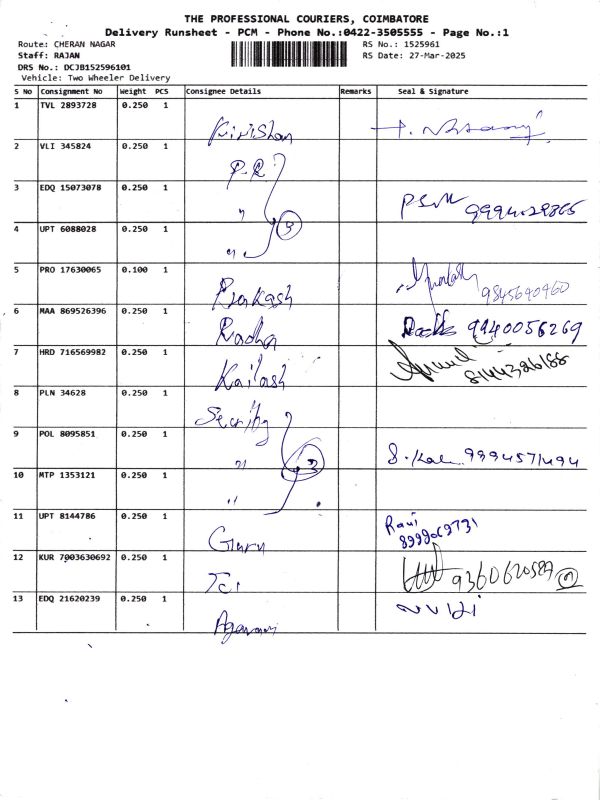 THE PROFESSIONAL COURIERS, COIMBATORE
Delivery Runsheet - PCM - Phone No.:0422-3505555 - Page No.:1
Route: CHERAN NAGAR
RS No.: 1525961
Staff: RAJAN
RS Date: 27-Mar-2025
DRS No.: DCJB152596101
Vehicle: Two Wheeler Delivery
S No Consignment No Weight PCS Consignee Details Remarks Seal & Signature
1 TVL 2893728 0.250 1
2 VLI 345824 0.250 1 P.R
3 EDQ 15073078 0.250 1 " PSM
4 UPT 6088028 0.250 1 " 3
5 PRO 17630065 0.100 1 Prakash 9845690960
6 MAA 869526396 0.250 1 Radha 9940056269
7 HRD 716569982 0.250 1 Kailash
8 PLN 34628 0.250 1
9 POL 8095851 0.250 1 " 3 9994571494
10 MTP 1353121 0.250 1 "
11 UPT 8144786 0.250 1 Guru Ravi
12 KUR 7003630692 0.250 1
13 EDQ 21620239 0.250 1